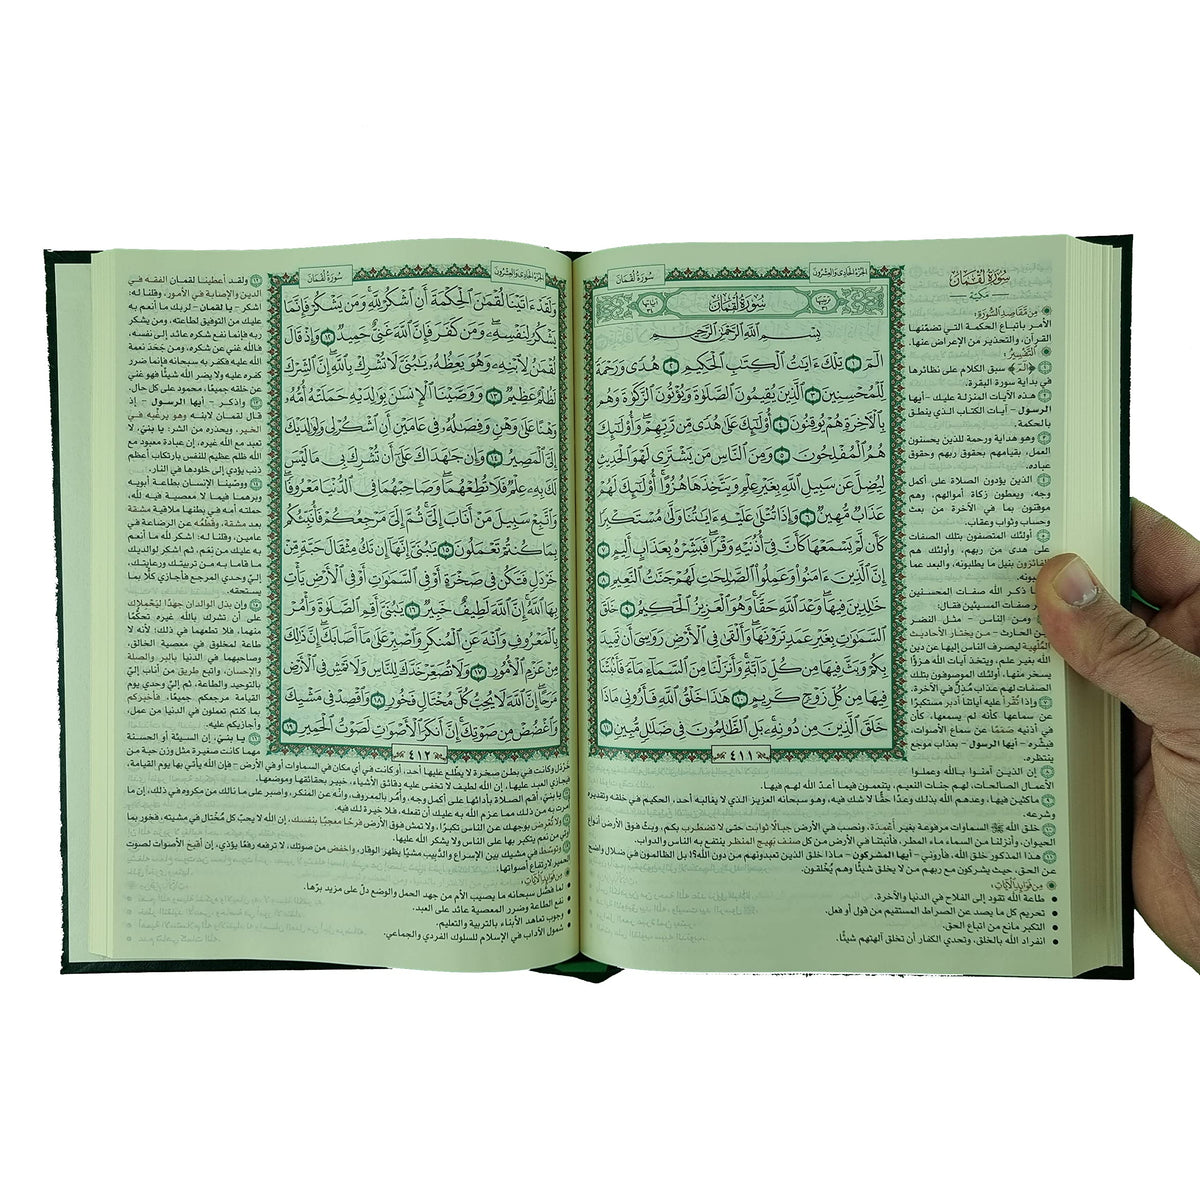 سُورَةُ لُقْمَانَ
الجُزْءُ الحَادِي وَالعِشْرُونَ
سُورَةُ لُقْمَانَ
بِسْمِ اللَّهِ الرَّحْمَٰنِ الرَّحِيمِ
الٓمٓ ١ تِلْكَ ءَايَٰتُ ٱلْكِتَٰبِ ٱلْحَكِيمِ ٢ هُدًى وَرَحْمَةً
لِّلْمُحْسِنِينَ ٣ ٱلَّذِينَ يُقِيمُونَ ٱلصَّلَوٰةَ وَيُؤْتُونَ ٱلزَّكَوٰةَ وَهُم
بِٱلْءَاخِرَةِ هُمْ يُوقِنُونَ ٤ أُوْلَٰٓئِكَ عَلَىٰ هُدًى مِّن رَّبِّهِمْ ۖ وَأُوْلَٰٓئِكَ
هُمُ ٱلْمُفْلِحُونَ ٥ وَمِنَ ٱلنَّاسِ مَن يَشْتَرِى لَهْوَ ٱلْحَدِيثِ
لِيُضِلَّ عَن سَبِيلِ ٱللَّهِ بِغَيْرِ عِلْمٍ وَيَتَّخِذَهَا هُزُوًا ۚ أُوْلَٰٓئِكَ لَهُمْ
عَذَابٌ مُّهِينٌ ٦ وَإِذَا تُتْلَىٰ عَلَيْهِ ءَايَٰتُنَا وَلَّىٰ مُسْتَكْبِرًا
كَأَن لَّمْ يَسْمَعْهَا كَأَنَّ فِىٓ أُذُنَيْهِ وَقْرًا ۖ فَبَشِّرْهُ بِعَذَابٍ أَلِيمٍ ٧
إِنَّ ٱلَّذِينَ ءَامَنُوا۟ وَعَمِلُوا۟ ٱلصَّٰلِحَٰتِ لَهُمْ جَنَّٰتُ ٱلنَّعِيمِ ٨
خَٰلِدِينَ فِيهَا ۖ وَعْدَ ٱللَّهِ حَقًّا ۚ وَهُوَ ٱلْعَزِيزُ ٱلْحَكِيمُ ٩ خَلَقَ
ٱلسَّمَٰوَٰتِ بِغَيْرِ عَمَدٍ تَرَوْنَهَا ۖ وَأَلْقَىٰ فِى ٱلْأَرْضِ رَوَٰسِىَ أَن تَمِيدَ
بِكُمْ وَبَثَّ فِيهَا مِن كُلِّ دَآبَّةٍ ۚ وَأَنزَلْنَا مِنَ ٱلسَّمَآءِ مَآءً فَأَنۢبَتْنَا
فِيهَا مِن كُلِّ زَوْجٍ كَرِيمٍ ١٠ هَٰذَا خَلْقُ ٱللَّهِ فَأَرُونِى مَاذَا
خَلَقَ ٱلَّذِينَ مِن دُونِهِۦ ۚ بَلِ ٱلظَّٰلِمُونَ فِى ضَلَٰلٍ مُّبِينٍ ١١
٤١١
سُورَةُ لُقْمَانَ
مَكيّة
مِن مَّقَاصِدِ السُّورَةِ:
الأمر باتباع الحكمة التي تضمّنها
القرآن، والتحذير من الإعراض عنها.
التَّفْسِيرُ:
١ ﴿الٓمٓ﴾ سبق الكلام على نظائرها
في بداية سورة البقرة.
٢ هذه الآيات المنزلة عليك - أيها
الرسول - آيات الكتاب الذي ينطق
بالحكمة.
٣ وهو هداية ورحمة للذين يحسنون
العمل، بقيامهم بحقوق ربهم وحقوق
عباده.
٤ الذين يؤدون الصلاة على أكمل
وجه، ويعطون زكاة أموالهم، وهم
موقنون بما في الآخرة من بعث
وحساب وثواب وعقاب.
٥ أولئك المتصفون بتلك الصفات
على هدى من ربهم، وأولئك هم
الفائزون بنيل ما يطلبونه، والبعد عما
ذكر الله صفات المحسنين
صفات المسيئين فقال:
ومن الناس - مثل النضر
بن الحارث - من يختار الأحاديث
المُلْهِية ليصرف الناس إليها عن دين
الله بغير علم، ويتخذ آيات الله هزؤًا
يسخر منها، أولئك الموصوفون بتلك
الصفات لهم عذاب مُذِلّ في الآخرة.
٧ وإذا تُقْرأ عليه آياتنا أدبر مستكبرًا
عن سماعها كأنه لم يسمعها، كأن
في أذنيه صَمَمًا عن سماع الأصوات،
فبشّره - أيها الرسول - بعذاب موجع
ينتظره.
٨ إن الذين آمنوا بالله وعملوا
الأعمال الصالحات، لهم جنات النعيم، يتنعمون فيما أعدّ الله لهم فيها.
٩ ماكثين فيها، وعدهم الله بذلك وعدًا حقًّا لا شك فيه، وهو سبحانه العزيز الذي لا يغالبه أحد، الحكيم في خلقه وتقديره
وشرعه.
١٠ خلق الله ﷻ السماوات مرفوعة بغير أعْمِدة، ونصب في الأرض جبالًا ثوابت حتى لا تضطرب بكم، وبثّ فوق الأرض أنواع
الحيوان، وأنزلنا من السماء ماء المطر، فأنبتنا في الأرض من كل صنف بَهِيج المنظر ينتفع به الناس والدواب.
١١ هذا المذكور خلق الله، فأروني - أيها المشركون - ماذا خلق الذين تعبدونهم من دون الله؟! بل الظالمون في ضلال واضح
عن الحق، حيث يشركون مع ربهم من لا يخلق شيئًا وهم يُخْلقون.
مِن فَوَائِدِ الآيَاتِ:
• طاعة الله تقود إلى الفلاح في الدنيا والآخرة.
• تحريم كل ما يصد عن الصراط المستقيم من قول أو فعل.
• التكبر مانع من اتباع الحق.
• انفراد الله بالخلق، وتحدي الكفار أن تخلق آلهتهم شيئًا.
الجُزْءُ الحَادِي وَالعِشْرُونَ
سُورَةُ لُقْمَانَ
وَلَقَدْ ءَاتَيْنَا لُقْمَٰنَ ٱلْحِكْمَةَ أَنِ ٱشْكُرْ لِلَّهِ ۚ وَمَن يَشْكُرْ فَإِنَّمَا
يَشْكُرُ لِنَفْسِهِۦ ۖ وَمَن كَفَرَ فَإِنَّ ٱللَّهَ غَنِىٌّ حَمِيدٌ ١٢ وَإِذْ قَالَ
لُقْمَٰنُ لِٱبْنِهِۦ وَهُوَ يَعِظُهُۥ يَٰبُنَىَّ لَا تُشْرِكْ بِٱللَّهِ ۖ إِنَّ ٱلشِّرْكَ
لَظُلْمٌ عَظِيمٌ ١٣ وَوَصَّيْنَا ٱلْإِنسَٰنَ بِوَٰلِدَيْهِ حَمَلَتْهُ أُمُّهُۥ
وَهْنًا عَلَىٰ وَهْنٍ وَفِصَٰلُهُۥ فِى عَامَيْنِ أَنِ ٱشْكُرْ لِى وَلِوَٰلِدَيْكَ
إِلَىَّ ٱلْمَصِيرُ ١٤ وَإِن جَٰهَدَاكَ عَلَىٰٓ أَن تُشْرِكَ بِى مَا لَيْسَ
لَكَ بِهِۦ عِلْمٌ فَلَا تُطِعْهُمَا ۖ وَصَاحِبْهُمَا فِى ٱلدُّنْيَا مَعْرُوفًا ۖ
وَٱتَّبِعْ سَبِيلَ مَنْ أَنَابَ إِلَىَّ ۚ ثُمَّ إِلَىَّ مَرْجِعُكُمْ فَأُنَبِّئُكُم
بِمَا كُنتُمْ تَعْمَلُونَ ١٥ يَٰبُنَىَّ إِنَّهَآ إِن تَكُ مِثْقَالَ حَبَّةٍ مِّنْ
خَرْدَلٍ فَتَكُن فِى صَخْرَةٍ أَوْ فِى ٱلسَّمَٰوَٰتِ أَوْ فِى ٱلْأَرْضِ يَأْتِ
بِهَا ٱللَّهُ ۚ إِنَّ ٱللَّهَ لَطِيفٌ خَبِيرٌ ١٦ يَٰبُنَىَّ أَقِمِ ٱلصَّلَوٰةَ وَأْمُرْ
بِٱلْمَعْرُوفِ وَٱنْهَ عَنِ ٱلْمُنكَرِ وَٱصْبِرْ عَلَىٰ مَآ أَصَابَكَ ۖ إِنَّ ذَٰلِكَ
مِنْ عَزْمِ ٱلْأُمُورِ ١٧ وَلَا تُصَعِّرْ خَدَّكَ لِلنَّاسِ وَلَا تَمْشِ فِى ٱلْأَرْضِ
مَرَحًا ۖ إِنَّ ٱللَّهَ لَا يُحِبُّ كُلَّ مُخْتَالٍ فَخُورٍ ١٨ وَٱقْصِدْ فِى مَشْيِكَ
وَٱغْضُضْ مِن صَوْتِكَ ۚ إِنَّ أَنكَرَ ٱلْأَصْوَٰتِ لَصَوْتُ ٱلْحَمِيرِ ١٩
٤١٢
١٢ ولقد أعطينا لقمان الفقه في
الدين والإصابة في الأمور، وقلنا له:
اشكر - يا لقمان - لربك ما أنعم به
عليك من التوفيق لطاعته، ومن يشكر
ربه فإنما نفع شكره عائد إلى نفسه،
فالله غني عن شكره، ومن جَحَد نعمة
الله عليه فكفر به سبحانه فإنما ضرر
كفره عليه ولا يضر الله شيئًا فهو غني
عن خلقه جميعًا، محمود على كل حال.
١٣ واذكر - أيها الرسول - إذ
قال لقمان لابنه وهو يرغّبه في
الخير، ويحذره من الشر: يا بنيّ، لا
تعبد مع الله غيره، إن عبادة معبود مع
الله ظلم عظيم للنفس بارتكاب أعظم
ذنب يؤدي إلى خلودها في النار.
١٤ ووصّينا الإنسان بطاعة أبويه
وبرهما فيما لا معصية فيه لله،
حملته أمه في بطنها ملاقية مشقة
بعد مشقة، وقَطْعُه عن الرضاعة في
عامين، وقلنا له: اشكر لله ما أنعم
به عليك من نعم، ثم اشكر لوالديك
ما قاما به من تربيتك ورعايتك،
إليّ وحدي المرجع فأجازي كلًّا بما
يستحقه.
١٥ وإن بذل الوالدان جهدًا ليَحْملاك
على أن تشرك بالله غيره تحكّمًا
منهما، فلا تطعهما في ذلك؛ لأنه لا
طاعة لمخلوق في معصية الخالق،
وصاحبهما في الدنيا بالبر والصلة
والإحسان، واتبع طريق من أناب إليّ
بالتوحيد والطاعة، ثم إليّ وحدي يوم
القيامة مرجعكم جميعًا، فأخبركم
بما كنتم تعملون في الدنيا من عمل،
وأجازيكم عليه.
١٦ يا بنيّ، إن السيئة أو الحسنة
مهما كانت صغيرة مثل وزن حبة من
خَرْدَل وكانت في بطن صخرة لا يطلع عليها أحد، أو كانت في أي مكان في السماوات أو في الأرض - فإن الله يأتي بها يوم القيامة،
فيجازي العبد عليها، إن الله لطيف لا تخفى عليه دقائق الأشياء، خبير بحقائقها وموضعها.
١٧ يا بنيّ، أقم الصلاة بأدائها على أكمل وجه، وأمر بالمعروف، وانه عن المنكر، واصبر على ما نالك من مكروه في ذلك، إن ما
أمرت به من ذلك مما عزم الله به عليك أن تفعله، فلا خيرة لك فيه.
١٨ ولا تُعْرِض بوجهك عن الناس تكبرًا، ولا تمش فوق الأرض فرحًا معجبًا بنفسك، إن الله لا يحبّ كل مُخْتال في مشيته، فخور بما
أوتي من نعم يتكبر بها على الناس ولا يشكر الله عليها.
١٩ وتوسّط في مشيك بين الإسراع والدَّبِيب مشيًا يظهر الوقار، واخفض من صوتك، لا ترفعه رفعًا يؤذي، إن أقبح الأصوات لصوت
الحمير لارتفاع أصواتها.
مِن فَوَائِدِ الآيَاتِ:
• لما فصَّل سبحانه ما يصيب الأم من جهد الحمل والوضع دلّ على مزيد برّها.
• نفع الطاعة وضرر المعصية عائد على العبد.
• وجوب تعاهد الأبناء بالتربية والتعليم.
• شمول الآداب في الإسلام للسلوك الفردي والجماعي.